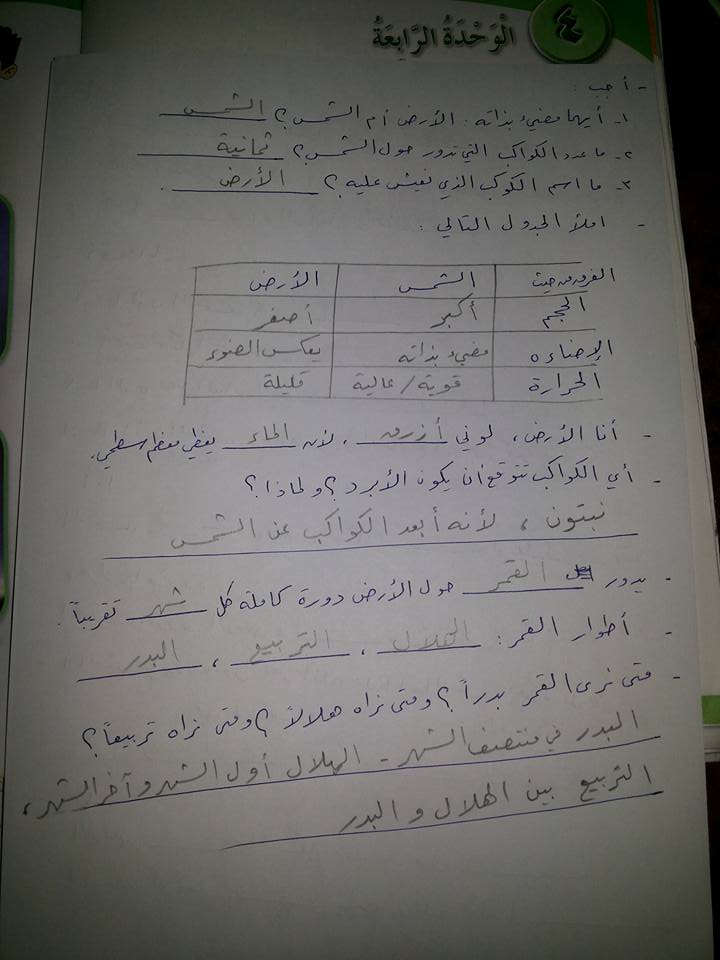 ٤ الْوَحْدَةُ الرَّابِعَةُ
- أجب :
١- أيهما مضيء بذاته : الأرض أم الشمس ؟ الشمس
٢- ما عدد الكواكب التي تدور حول الشمس ؟ ثمانية
٣- ما اسم الكوكب الذي نعيش عليه ؟ الأرض .
- املأ الجدول التالي :
الفرق من حيث الشمس الأرض
الحجم أكبر أصغر
الإضاءه مضيء بذاته يعكس الضوء
الحرارة قوية / عالية قليلة
- أنا الأرض ، لوني أزرق ، لأن الماء يغطي معظم سطحي .
- أي الكواكب تتوقع أن يكون الأبرد ؟ ولماذا ؟
نبتون ، لأنه أبعد الكواكب عن الشمس
- يدور القمر حول الأرض دورة كاملة كل شهر تقريباً .
- أطوار القمر : الهلال ، التربيع ، البدر
- متى نرى القمر بدراً ؟ ومتى نراه هلالاً ؟ ومتى نراه تربيعاً ؟
البدر في منتصف الشهر - الهلال أول الشهر وآخر الشهر ،
التربيع بين الهلال و البدر